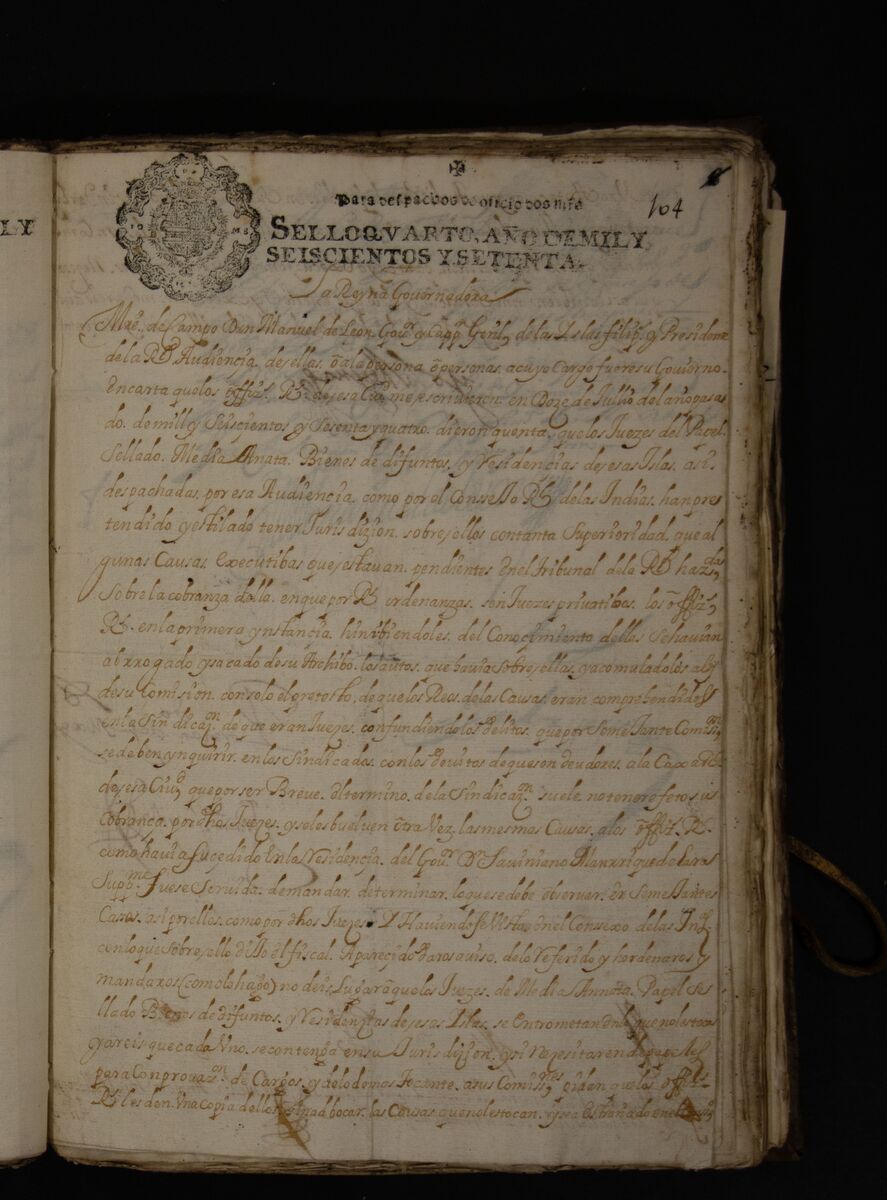 LY
✠
Para despachos de oficio dos mrs
104
SELLO QVARTO, AÑO DE MIL Y
SEISCIENTOS Y SETENTA.
La Reyna Gouernadora
Mrõ. de Campo Don Manuel de Leon Gou.r y Capp. Genl, de las Islas filip.s y Presidente
de la Rl Audiencia desellas. o a la persona o personas, a cuyo Cargo fuere su Gouierno.
En carta que los offiz.s Rs. de esa Ciud me escriuieron en Doze de Jullio del año pasa
do. de mill y Seiscientos y Sesenta y quatro. dieron quenta, que los Juezes del Papel
Sellado. Media Anata. Bienes de difuntos, y Residencias de esas Islas, asi
despachadas, por esa Audiencia, como por el Conssejo Rl de las Indias, han pre
tendido y estilado tener Jurisdizion. sobre ellos con tanta Superioridad, que al
gunas Causas, executibas que estauan. pendientes en el tribunal de la Rl hazda,
sobre la cobranza della. en que por Rs. ordenanzas. son Juezes pribatibos. los offiz.s
Rs. en la primera ynstancia, hinibiendoles. del Conocimiento dellos Se hauian
abrrogado y sacado de su Archibo. los autos, que hauia sobre ellas, y acomuladolos a los
de su Comision. con solo el pretesto, de que los Reos. de las Causas, eran comprehendidos
en la Sindicaz.n de que eran Juezes. confundiendo los delitos, que por Semejante Comis.n
se deben ynquirir. en los Sindicados. con los deuitos de que son deudores. a la Caxa Rl
de esa Ciud, que por ser Breue. el termino. de la Sindicaz.n suele no tener efeto su
Cobrança. por dhos Juezes. y se les bueluen otra Vez, las mesmas Causas. a los offiz. Rs.
como hauia suçedido En la Residencia. del Gou.r Dn Sauiniano Manrrique de Lara
Supp.me fuese Seruida. de mandar. determinar. lo que se debe obseruar. En Semejantes
Casos. asi por ellos. como por dhos Juezes. Y Hauiendose Visto en el Consexo de las Ind.s
con lo que sobre ello dijo el fiscal. A pareçido daros auiso. de lo Referido y hordenaros y
mandaros (como lo hago) no deis, Lugar a que los Juezes. de Media Annata. Papel Se
llado Bienes de difuntos. y Residencias de esas Islas. se Entrometan en lo que no les toca
y areis que cada Vno. se contenga en su Jurisdizion. y si Nezesitaren de papeles
para Conprouaz.n de Cargos. y de lo demas tocante. a sus Comis.nes pidan que los offiz.s
Rs les den Vna copia dellos sin abbocar. las Causas que no les tocan.